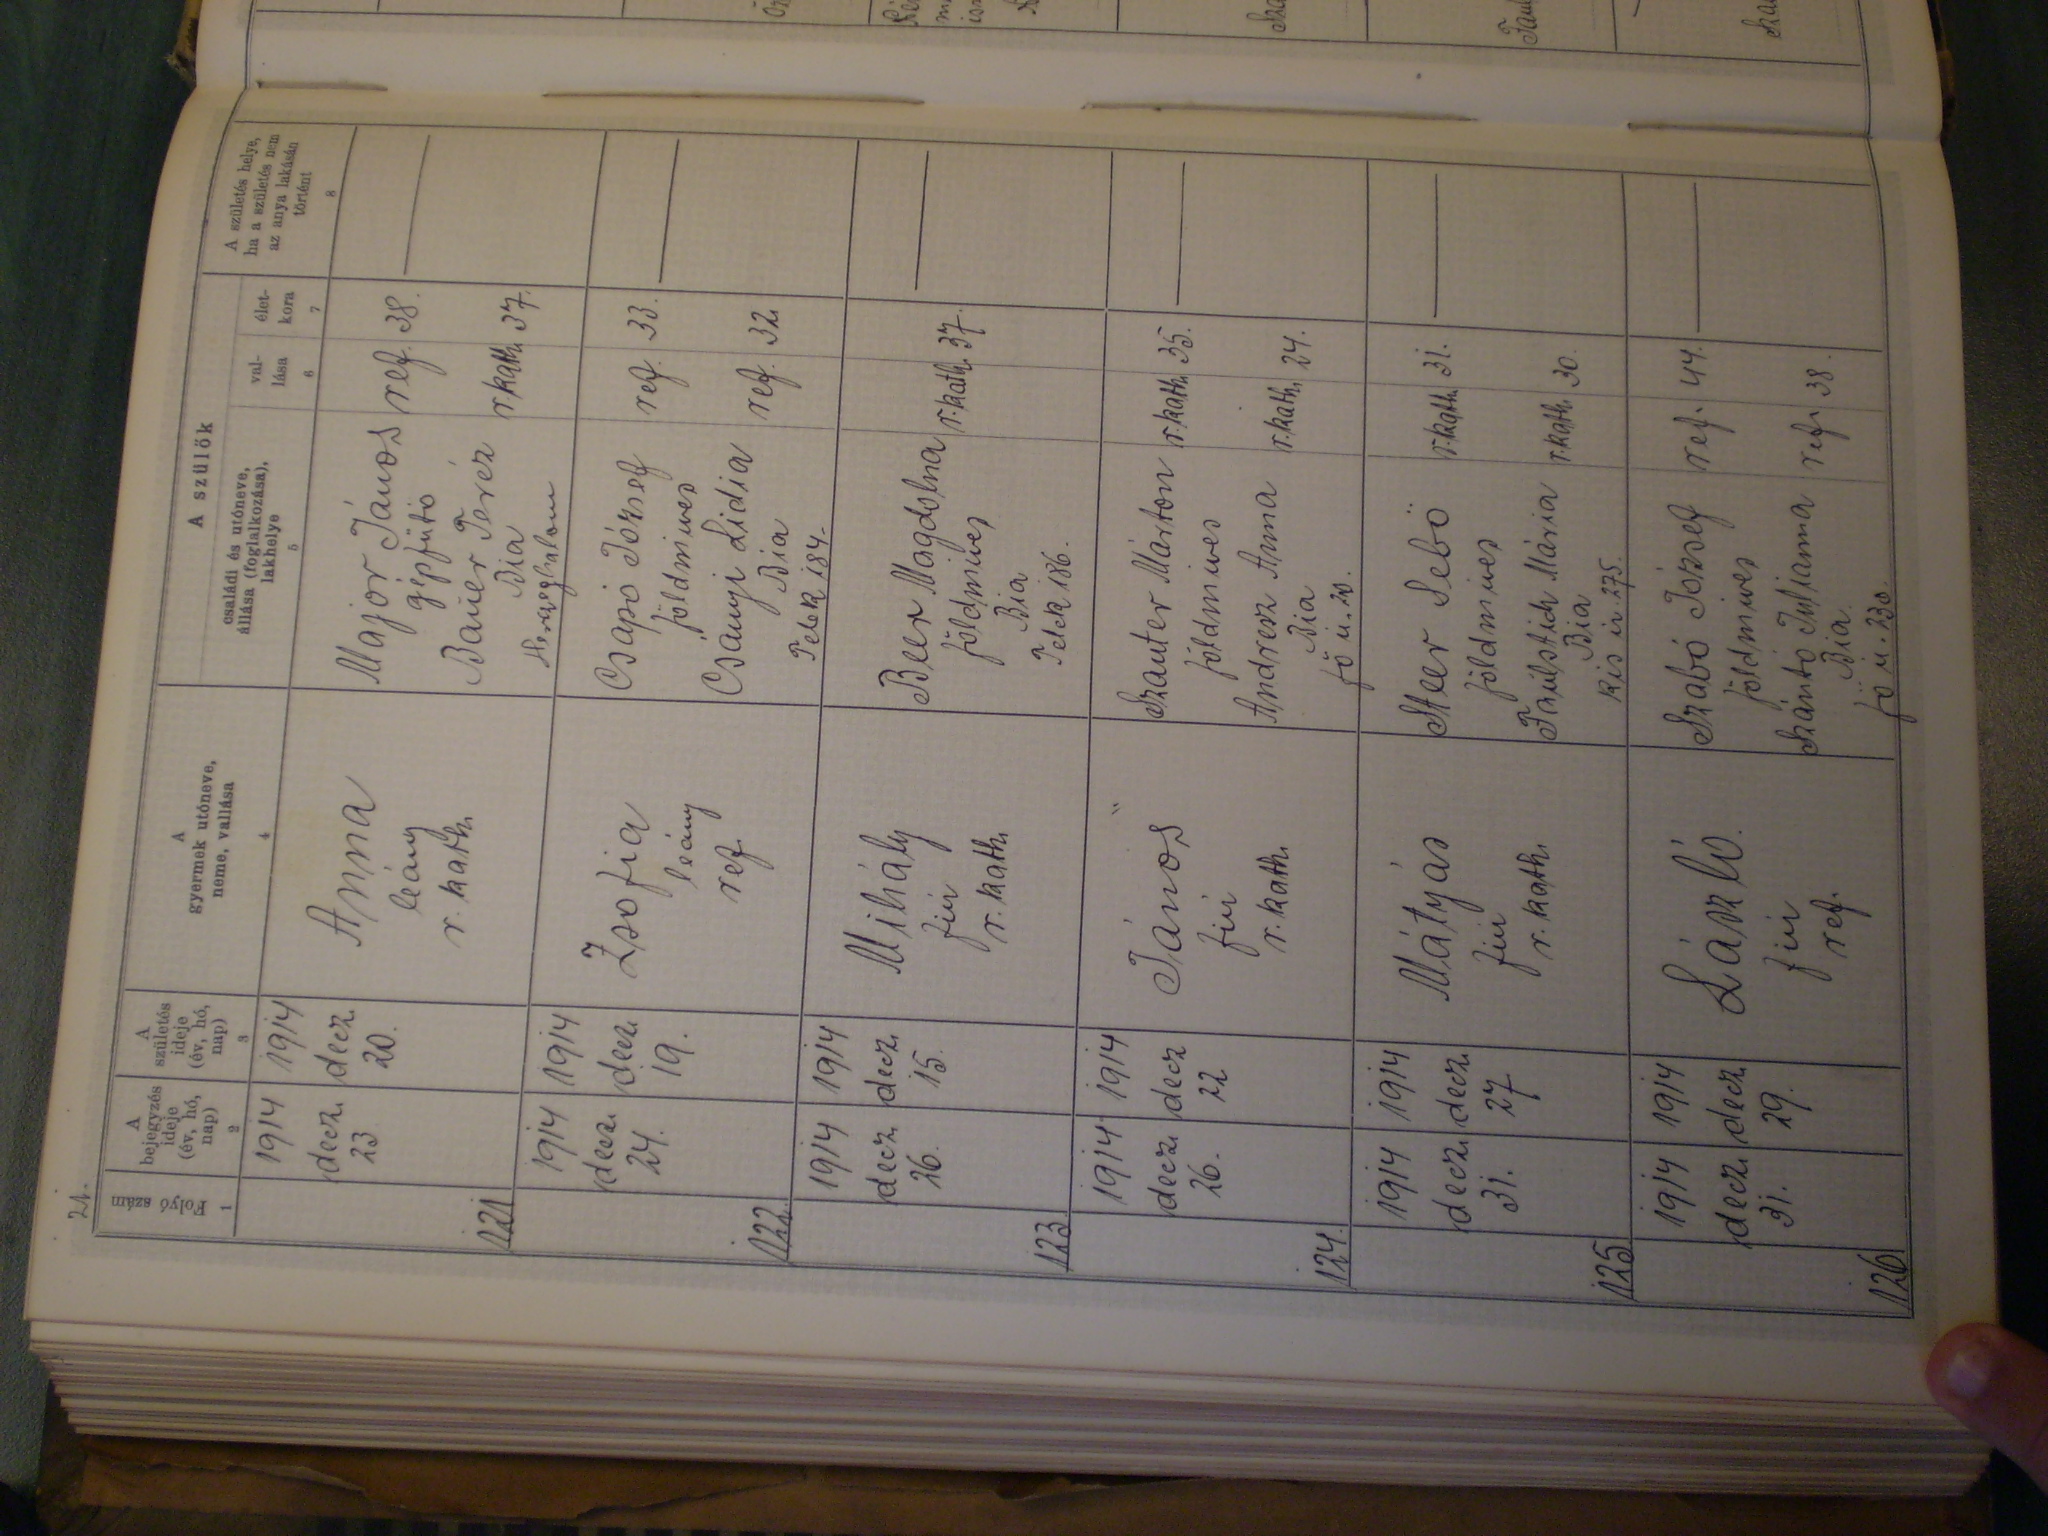 21.
Folyó szám
A bejegyzés ideje (év, hó, nap)
A születés ideje (év, hó, nap)
A gyermek utóneve, neme, vallása
A szülők
családi és utóneve, állása (foglalkozása), lakhelye
vallása
életkora
A születés helye, ha a születés nem az anya lakásán történt
1 2 3 4 5 6 7 8
121
1914 decz. 23
1914 decz. 20.
Anna
leány
r. kath.
Major János ref. 38.
gépfütő
Bauer Teréz r.kath. 37.
Bia
Herczeghalom
122.
1914 decz. 24.
1914 decz. 19.
Zsofia
leány
ref.
Csapó József ref. 33.
földmives
Csányi Lidia ref. 32.
Bia
Telek 184.
123
1914 decz. 26.
1914 decz. 15.
Mihály
fiú
r. kath.
Beer Magdolna r.kath. 37.
földmives
Bia
Telek 186.
124.
1914 decz. 26.
1914 decz 22
János
fiú
r. kath.
Szauter Márton r.kath. 35.
földmives
Andresz Anna r.kath. 24.
Bia
fő u. 20.
125
1914 decz. 31.
1914 decz. 27
Mátyás
fiú
r. kath.
Steer Sebő r.kath. 31.
földmives
Faulstich Mária r.kath. 30.
Bia
Kis u. 275.
126
1914 decz. 31.
1914 decz. 29.
László.
fiú
ref.
Szabó József ref. 44.
földmives
Szántó Julianna ref. 38.
Bia.
fő u. 230.